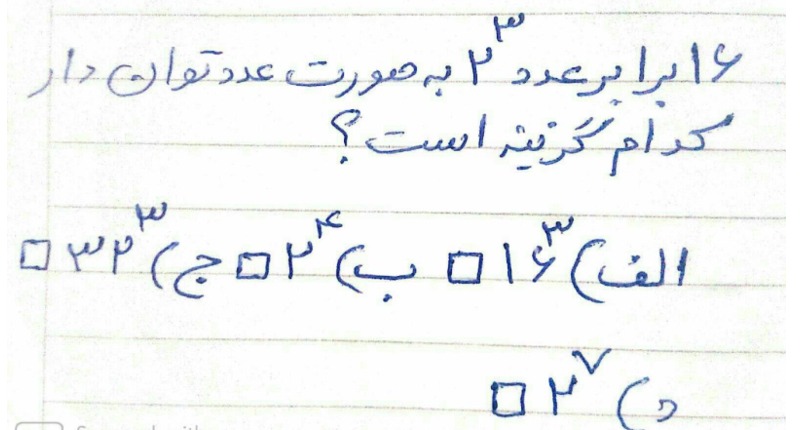 ۱۶ برابر عدد ۲^۳ به صورت عدد توان دار
کدام گزینه است؟
الف) ۱۶^۳ □ ب) ۲^۴ □ ج) ۳۲^۳ □
د) ۲^۷ □